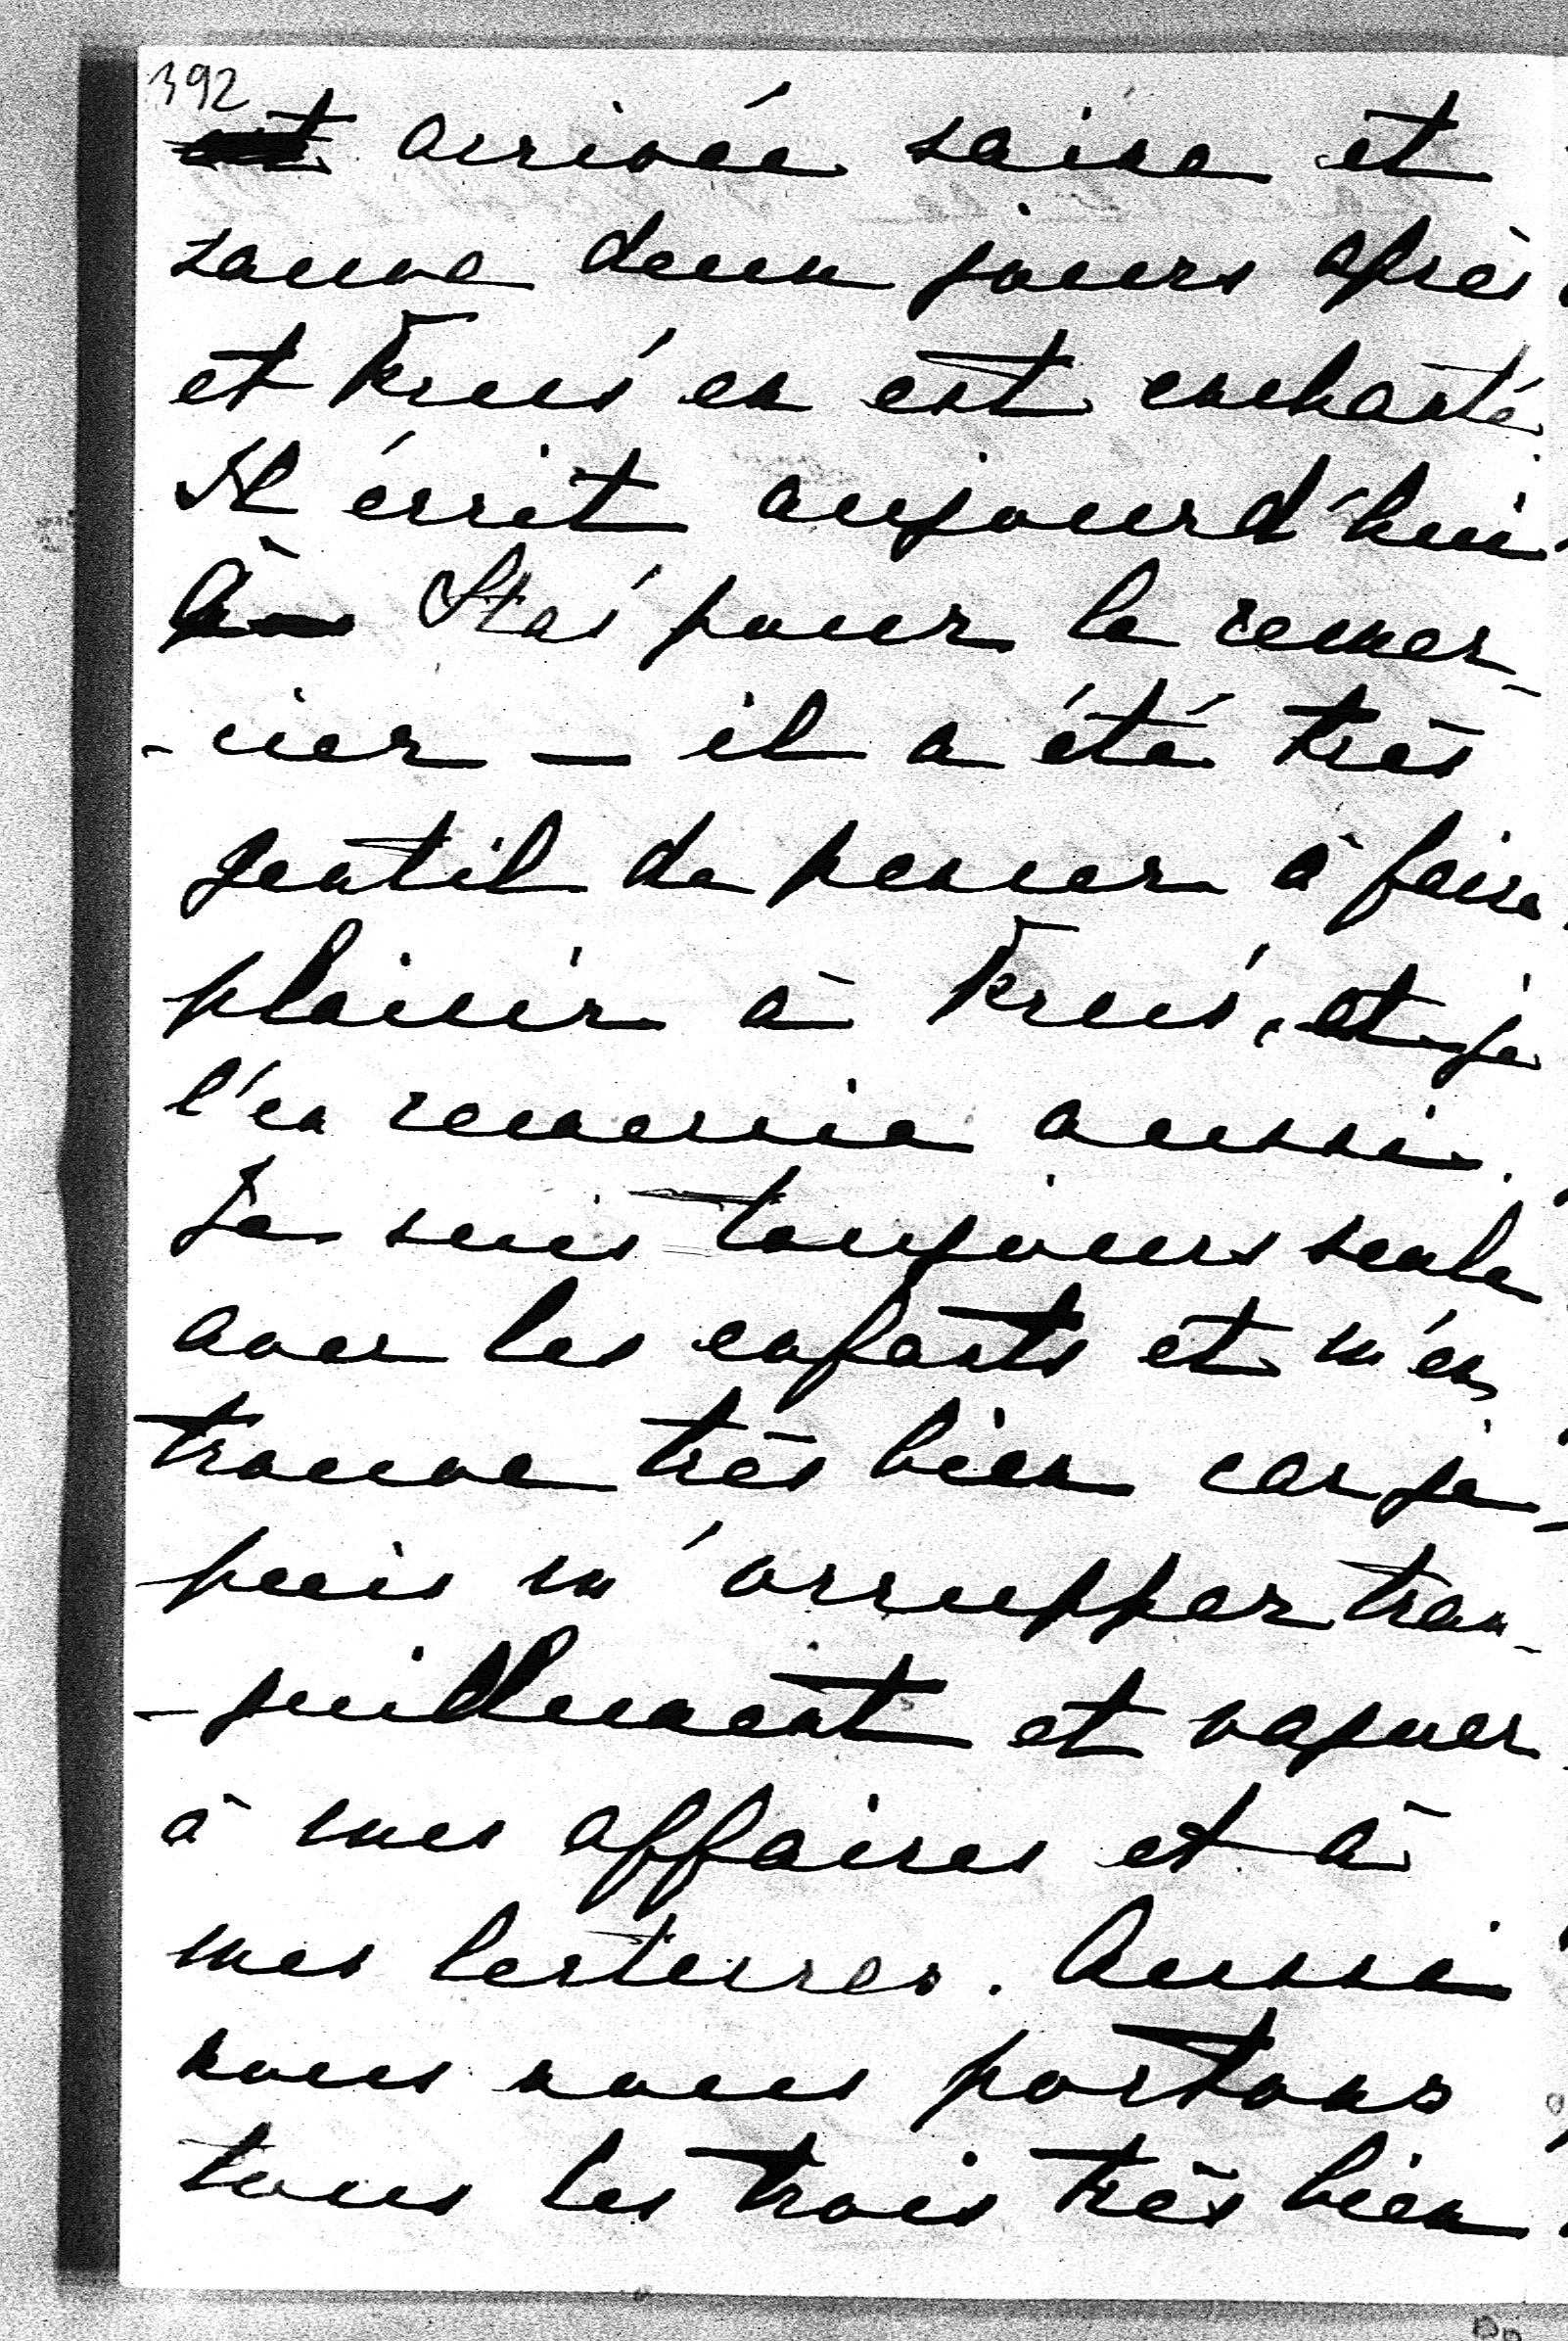 392
est arrivée saine et
sauve deux jours après
et en est enchanté.
Il écrit aujourd'hui
à Sta's pour le remer-
-cier — il a été très
gentil de penser à faire
plaisir à et je
l'en remercie aussi.
Je suis toujours seule
avec les enfants et m'en
trouve très bien car je
puis m'occupper tran-
-quillement et vaquer
à mes affaires et à
mes lectures. Aussi
nous nous portons
tous les trois très bien